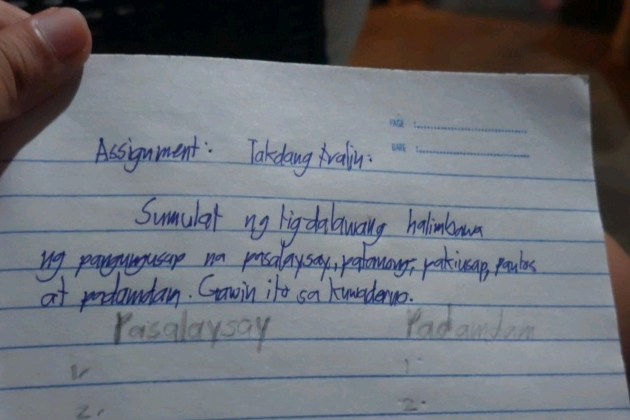 PAGE :
DATE :
Assignment: Takdang Aralin:
Sumulat ng tig-dalawang halimbawa
ng pangungusap na pasalaysay, patanong, pakiusap, pautos
at padamdam. Gawin ito sa kuwaderno.
Pasalaysay Padamdam
1. 1.
2. 2.